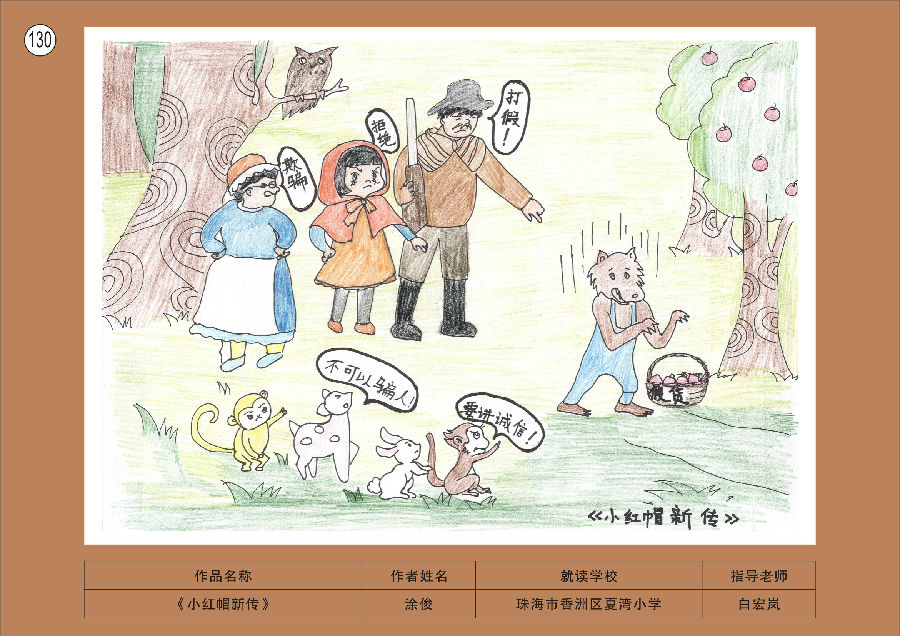 130
欺骗
拒绝
打假！
不可以骗人！
要讲诚信！
假货
《小红帽新传》
作品名称 作者姓名 就读学校 指导老师
《小红帽新传》 涂俊 珠海市香洲区夏湾小学 白宏岚